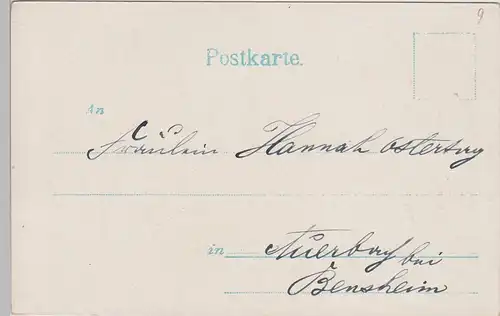 9
Postkarte.
An
Fräulein Hannah Ostertag
in Auerbach bei
Bensheim